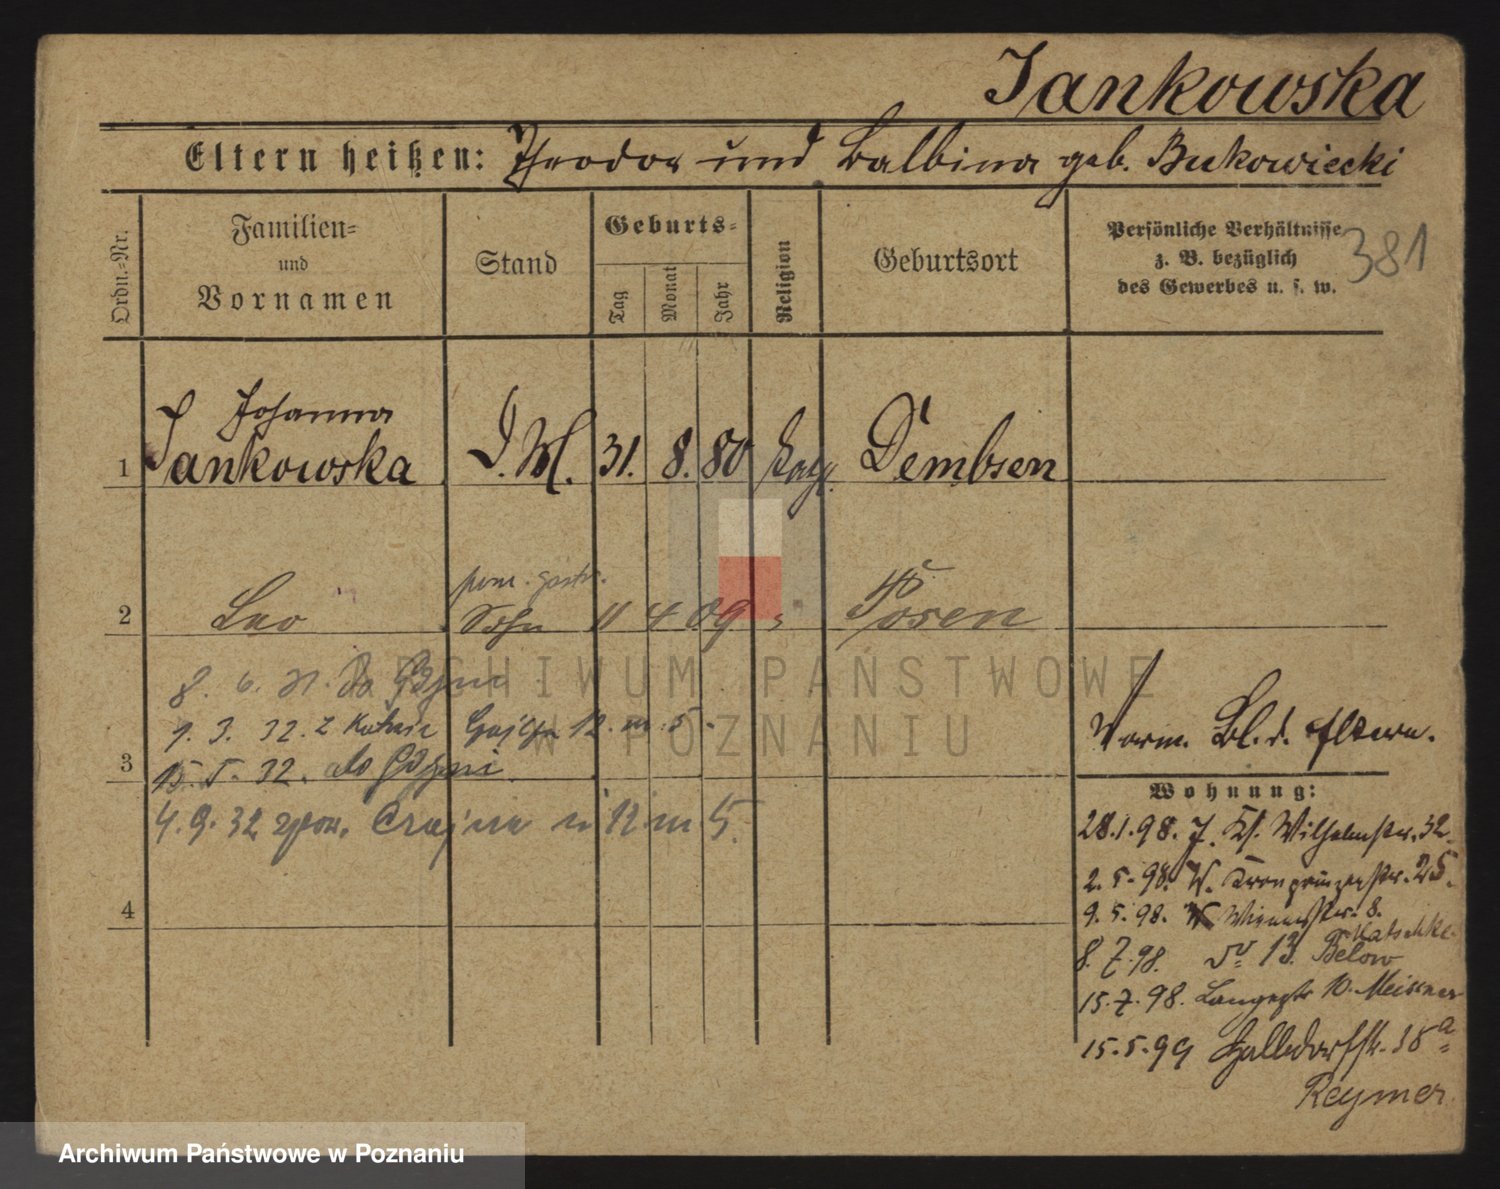 Jankowska
Eltern heißen: Theodor und Balbina geb. Bukowiecki
Ordn.=Nr.
Familien=
und
Vornamen
Stand
Geburts=
Tag
Monat
Jahr
Religion
Geburtsort
Persönliche Verhältnisse
z. B. bezüglich
des Gewerbes u. s. w.
381
Johanna
1 Jankowska D.M. 31. 8. 80 kath. Dembsen
2 Leo Sohn 11 4 09 Posen
8. 6. 31. do Gdyni
9. 3. 32. z 12. m. 5.
3 15. 5. 32. do Gdyni
4. 9. 32 12 m 5.
4
Vorm. Bl. d. Eltern.
Wohnung:
28.1.98. J. Kl. Wilhelmstr. 32.
2. 5. 98. W. Kronprinzenstr. 25.
9. 5. 98. 8.
8. 7. 98. do 13. Below
15. 7. 98. Langestr 10. Meissner
15. 5. 99 Halbdorfstr. 18a
Reymer
ARCHIWUM PAŃSTWOWE
W POZNANIU
Archiwum Państwowe w Poznaniu